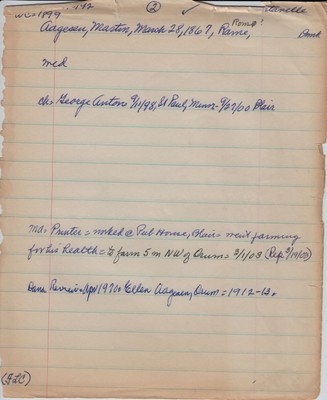 WC=1899
② 
Aagesen, Martin, March 28, 1867, Rame, Rome?
Dmd
med
ch= George Anton= 9/11/98, St Paul, Minn= 9/27/00 Blair
md= Painter = mked @ Pub House, Blair = went farming
for his health = to farm 5 m NW of Orum = 3/1/03 (Rep. 9/19/03)
Dana Review= Apr 1970= Ellen Aagesen, Orum = 1912-13.
(FLC)